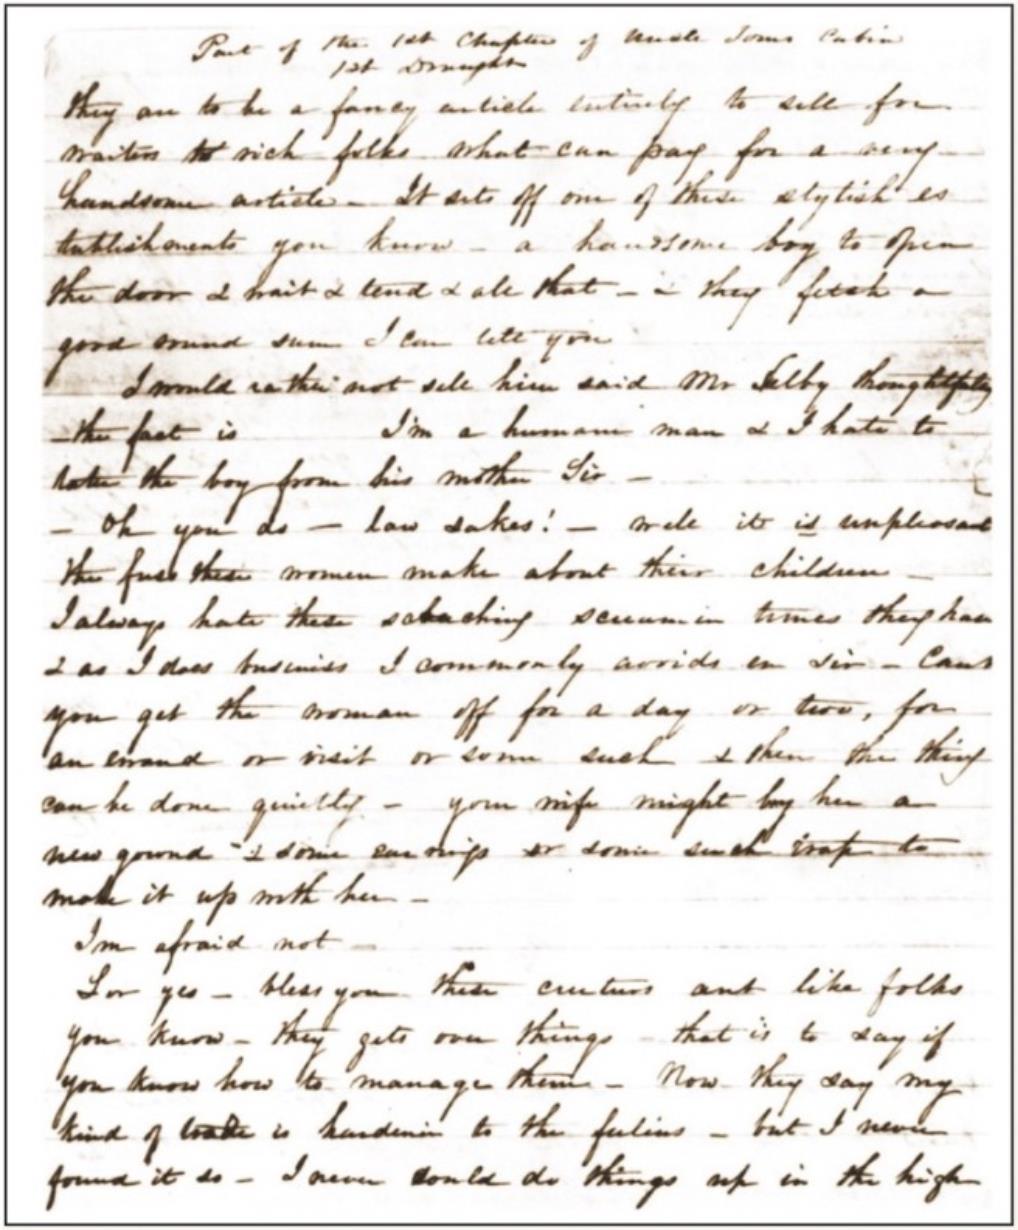 Part of the 1st Chapter of Uncle Toms Cabin
1st Draught
they are to be a fancy article entirely to sell for
waiters to rich folks what can pay for a very
handsome article - It sets off one of these stylish es
tablishments you know - a handsome boy to open
the door & wait & tend & all that - & they fetch a
good round sum I can tell you
I would rather not sell him said Mr Selby thoughtfully
- the fact is I'm a humane man & I hate to
take the boy from his mother Sir -
- Oh you do - law sakes! - well it is unpleasant
the fuss these women make about their children -
I always hate these screaching screamin times they have
& as I does business I commonly avoids em sir - Cant
you get the woman off for a day or two, for
an errand or visit or some such & then the thing
can be done quietly - your wife might buy her a
new gound & some earrings or some such trap to
make it up with her -
I'm afraid not -
Lor yes - bless you these creeturs ant like folks
you know - they gets over things - that is to say if
you know how to manage them - Now they say my
kind of trade is hardenin to the feelins - but I never
found it so - I never could do things up in the high